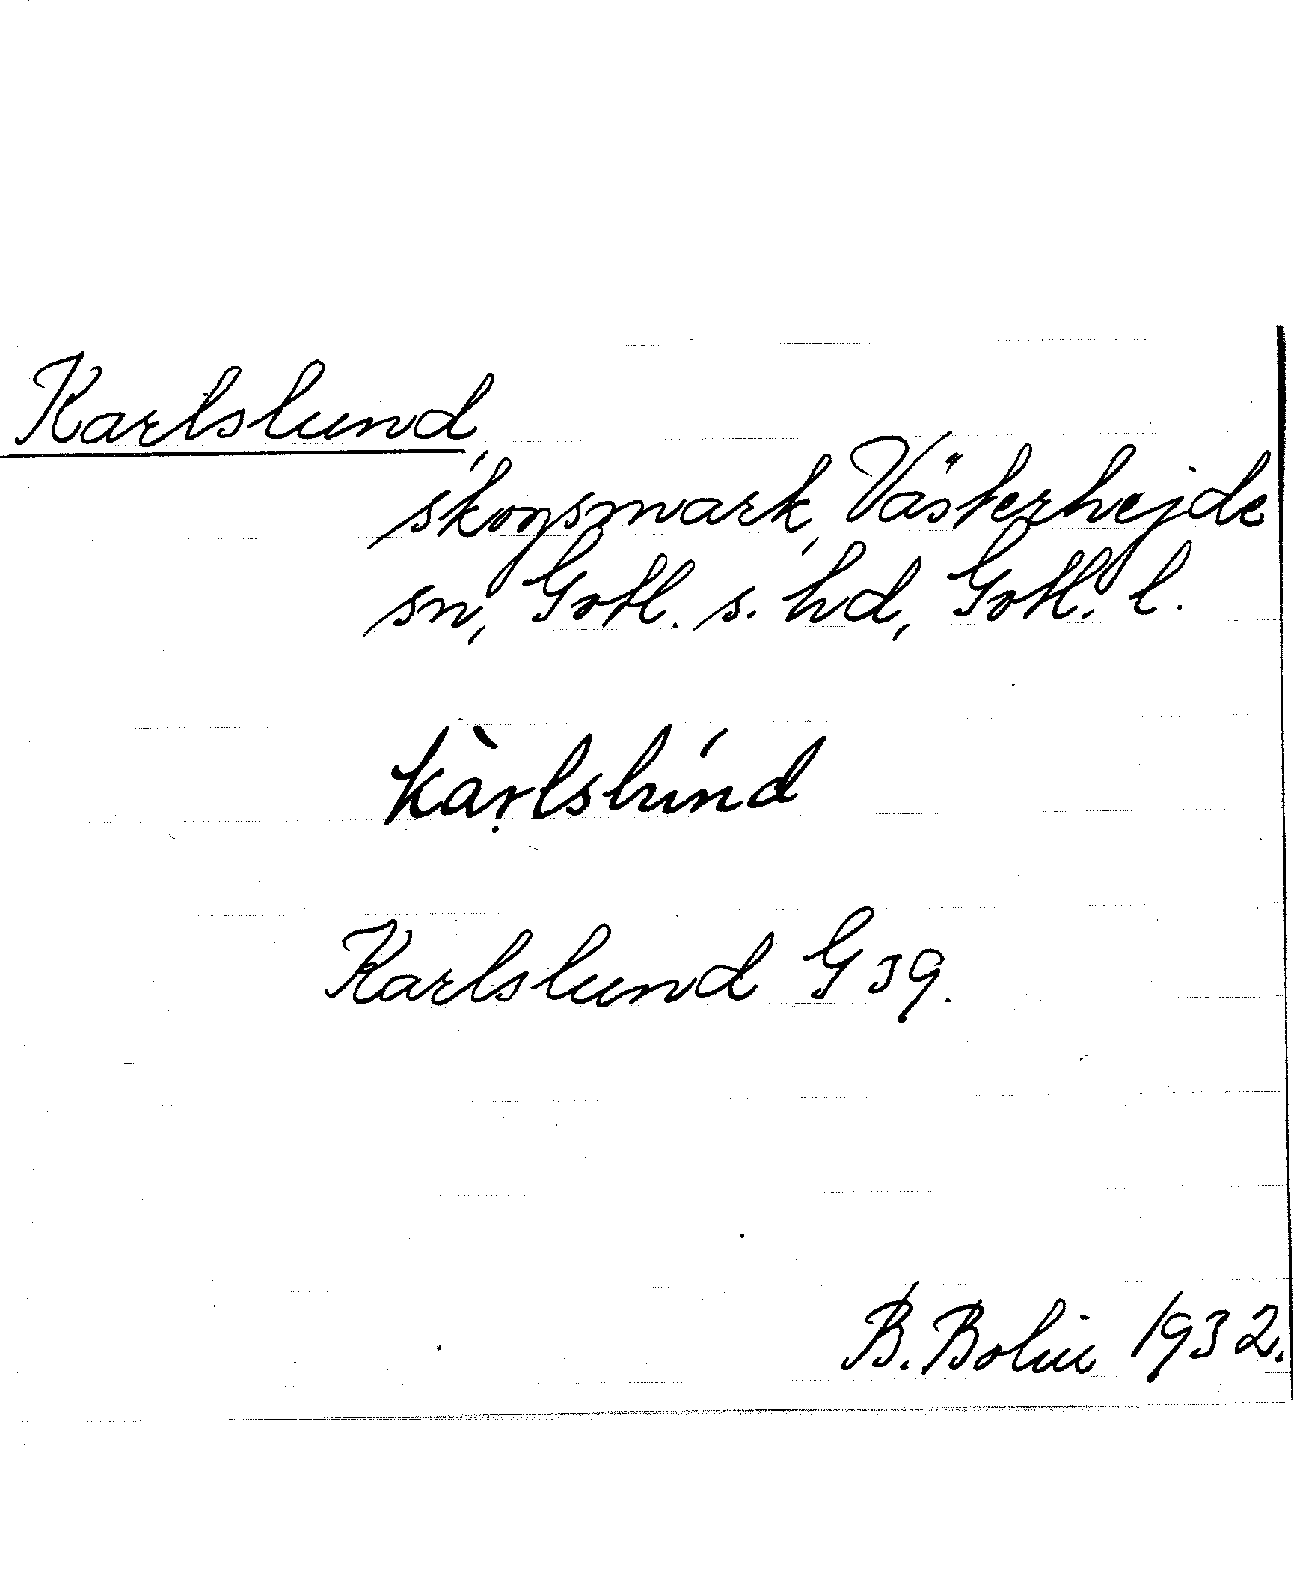 Karlslund,
skogsmark, Västerhejde
sn, Gotl. s. hd, Gotl. l.
kàrḷslúnd
Karlslund G 39.
B. Bolin 1932.